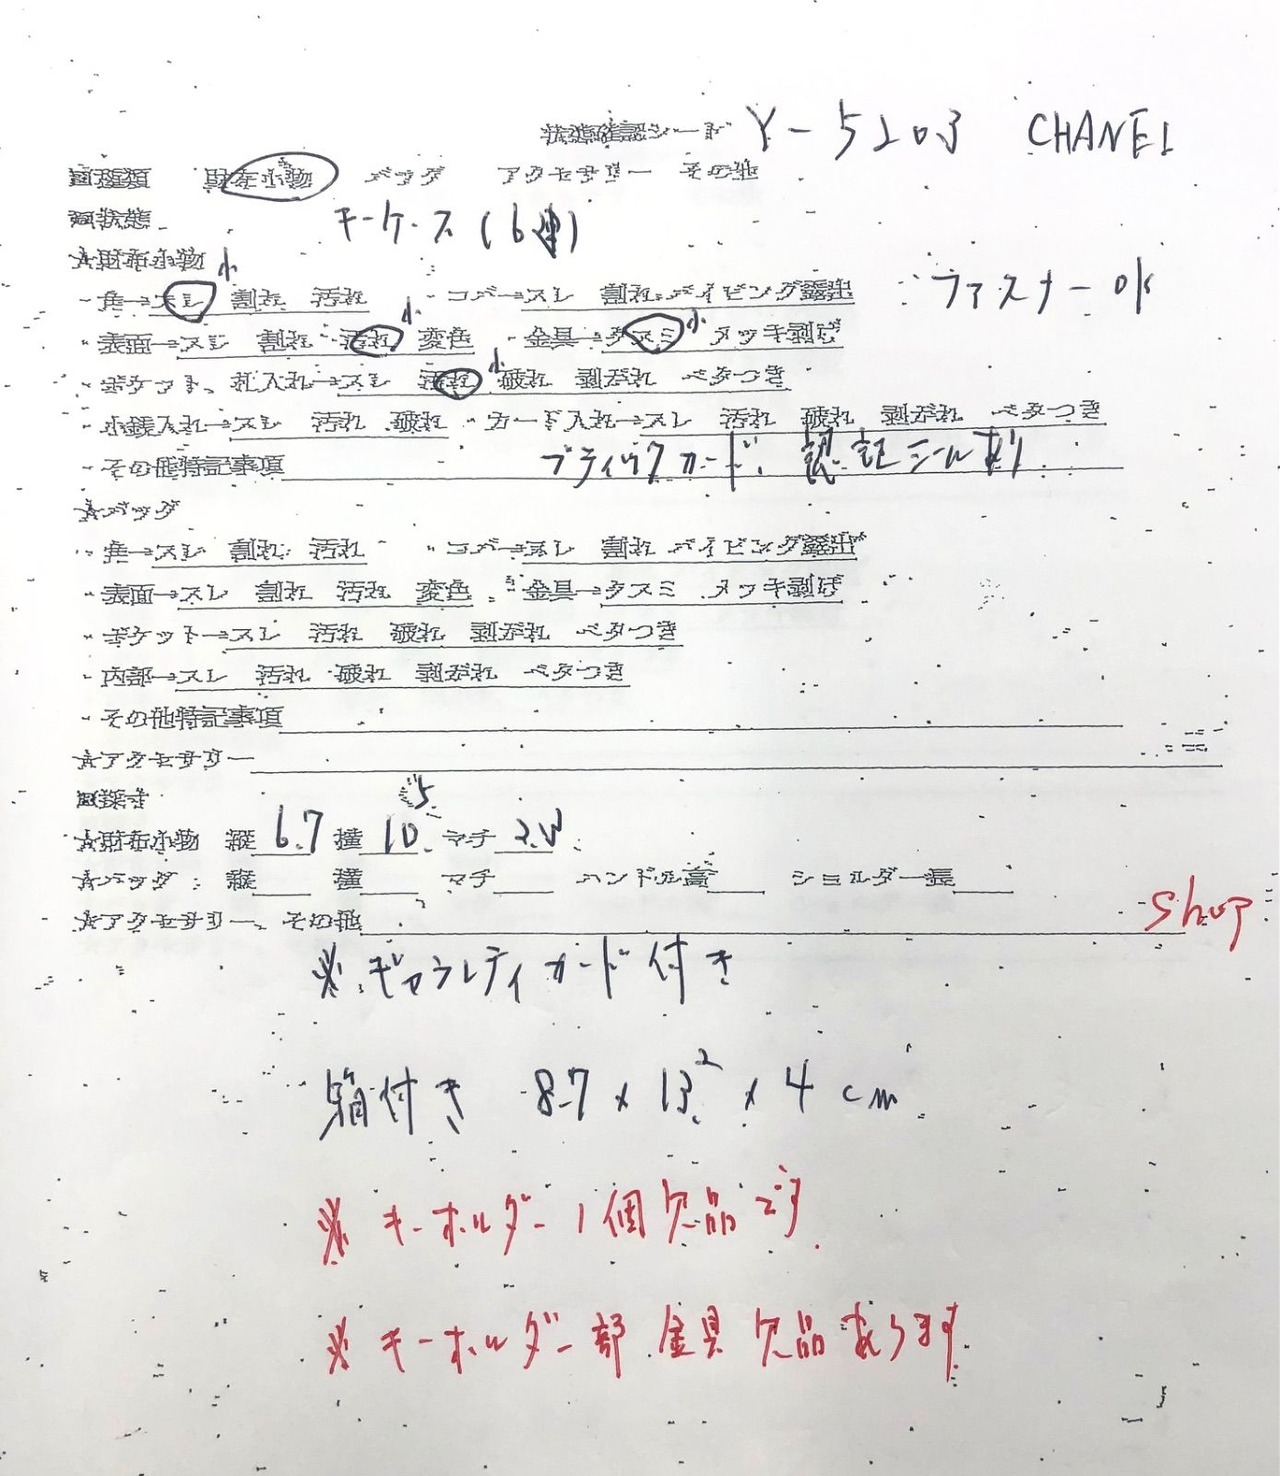 状態確認シート Y-5203 CHANEL
□種類 財布小物 バッグ アクセサリー その他
□状態 キーケース(6連)
★財布小物
・角→スレ 小 割れ 汚れ ・コバ→スレ 割れ パイピング露出 ファスナーOK
・表面→スレ 割れ 汚れ 小 変色 ・金具→クスミ 小 メッキ剥げ
・ポケット、札入れ→スレ 汚れ 小 破れ 剥がれ ベタつき
・小銭入れ→スレ 汚れ 破れ ・カード入れ→スレ 汚れ 破れ 剥がれ ベタつき
・その他特記事項 ブティックカード、認証シールあり
★バッグ
・角→スレ 割れ 汚れ ・コバ→スレ 割れ パイピング露出
・表面→スレ 割れ 汚れ 変色 ・金具→クスミ メッキ剥げ
・ポケット→スレ 汚れ 破れ 剥がれ ベタつき
・内部→スレ 汚れ 破れ 剥がれ ベタつき
・その他特記事項
★アクセサリー
□採寸
★財布小物 縦 6.7 横 10.5 マチ
★バッグ 縦 横 マチ ハンドル高 ショルダー長
★アクセサリー、その他 shop
※ギャランティカード付き
箱付き 8.7×13.2×4cm
※キーホルダー1個欠品です
※キーホルダー部金具欠品あります